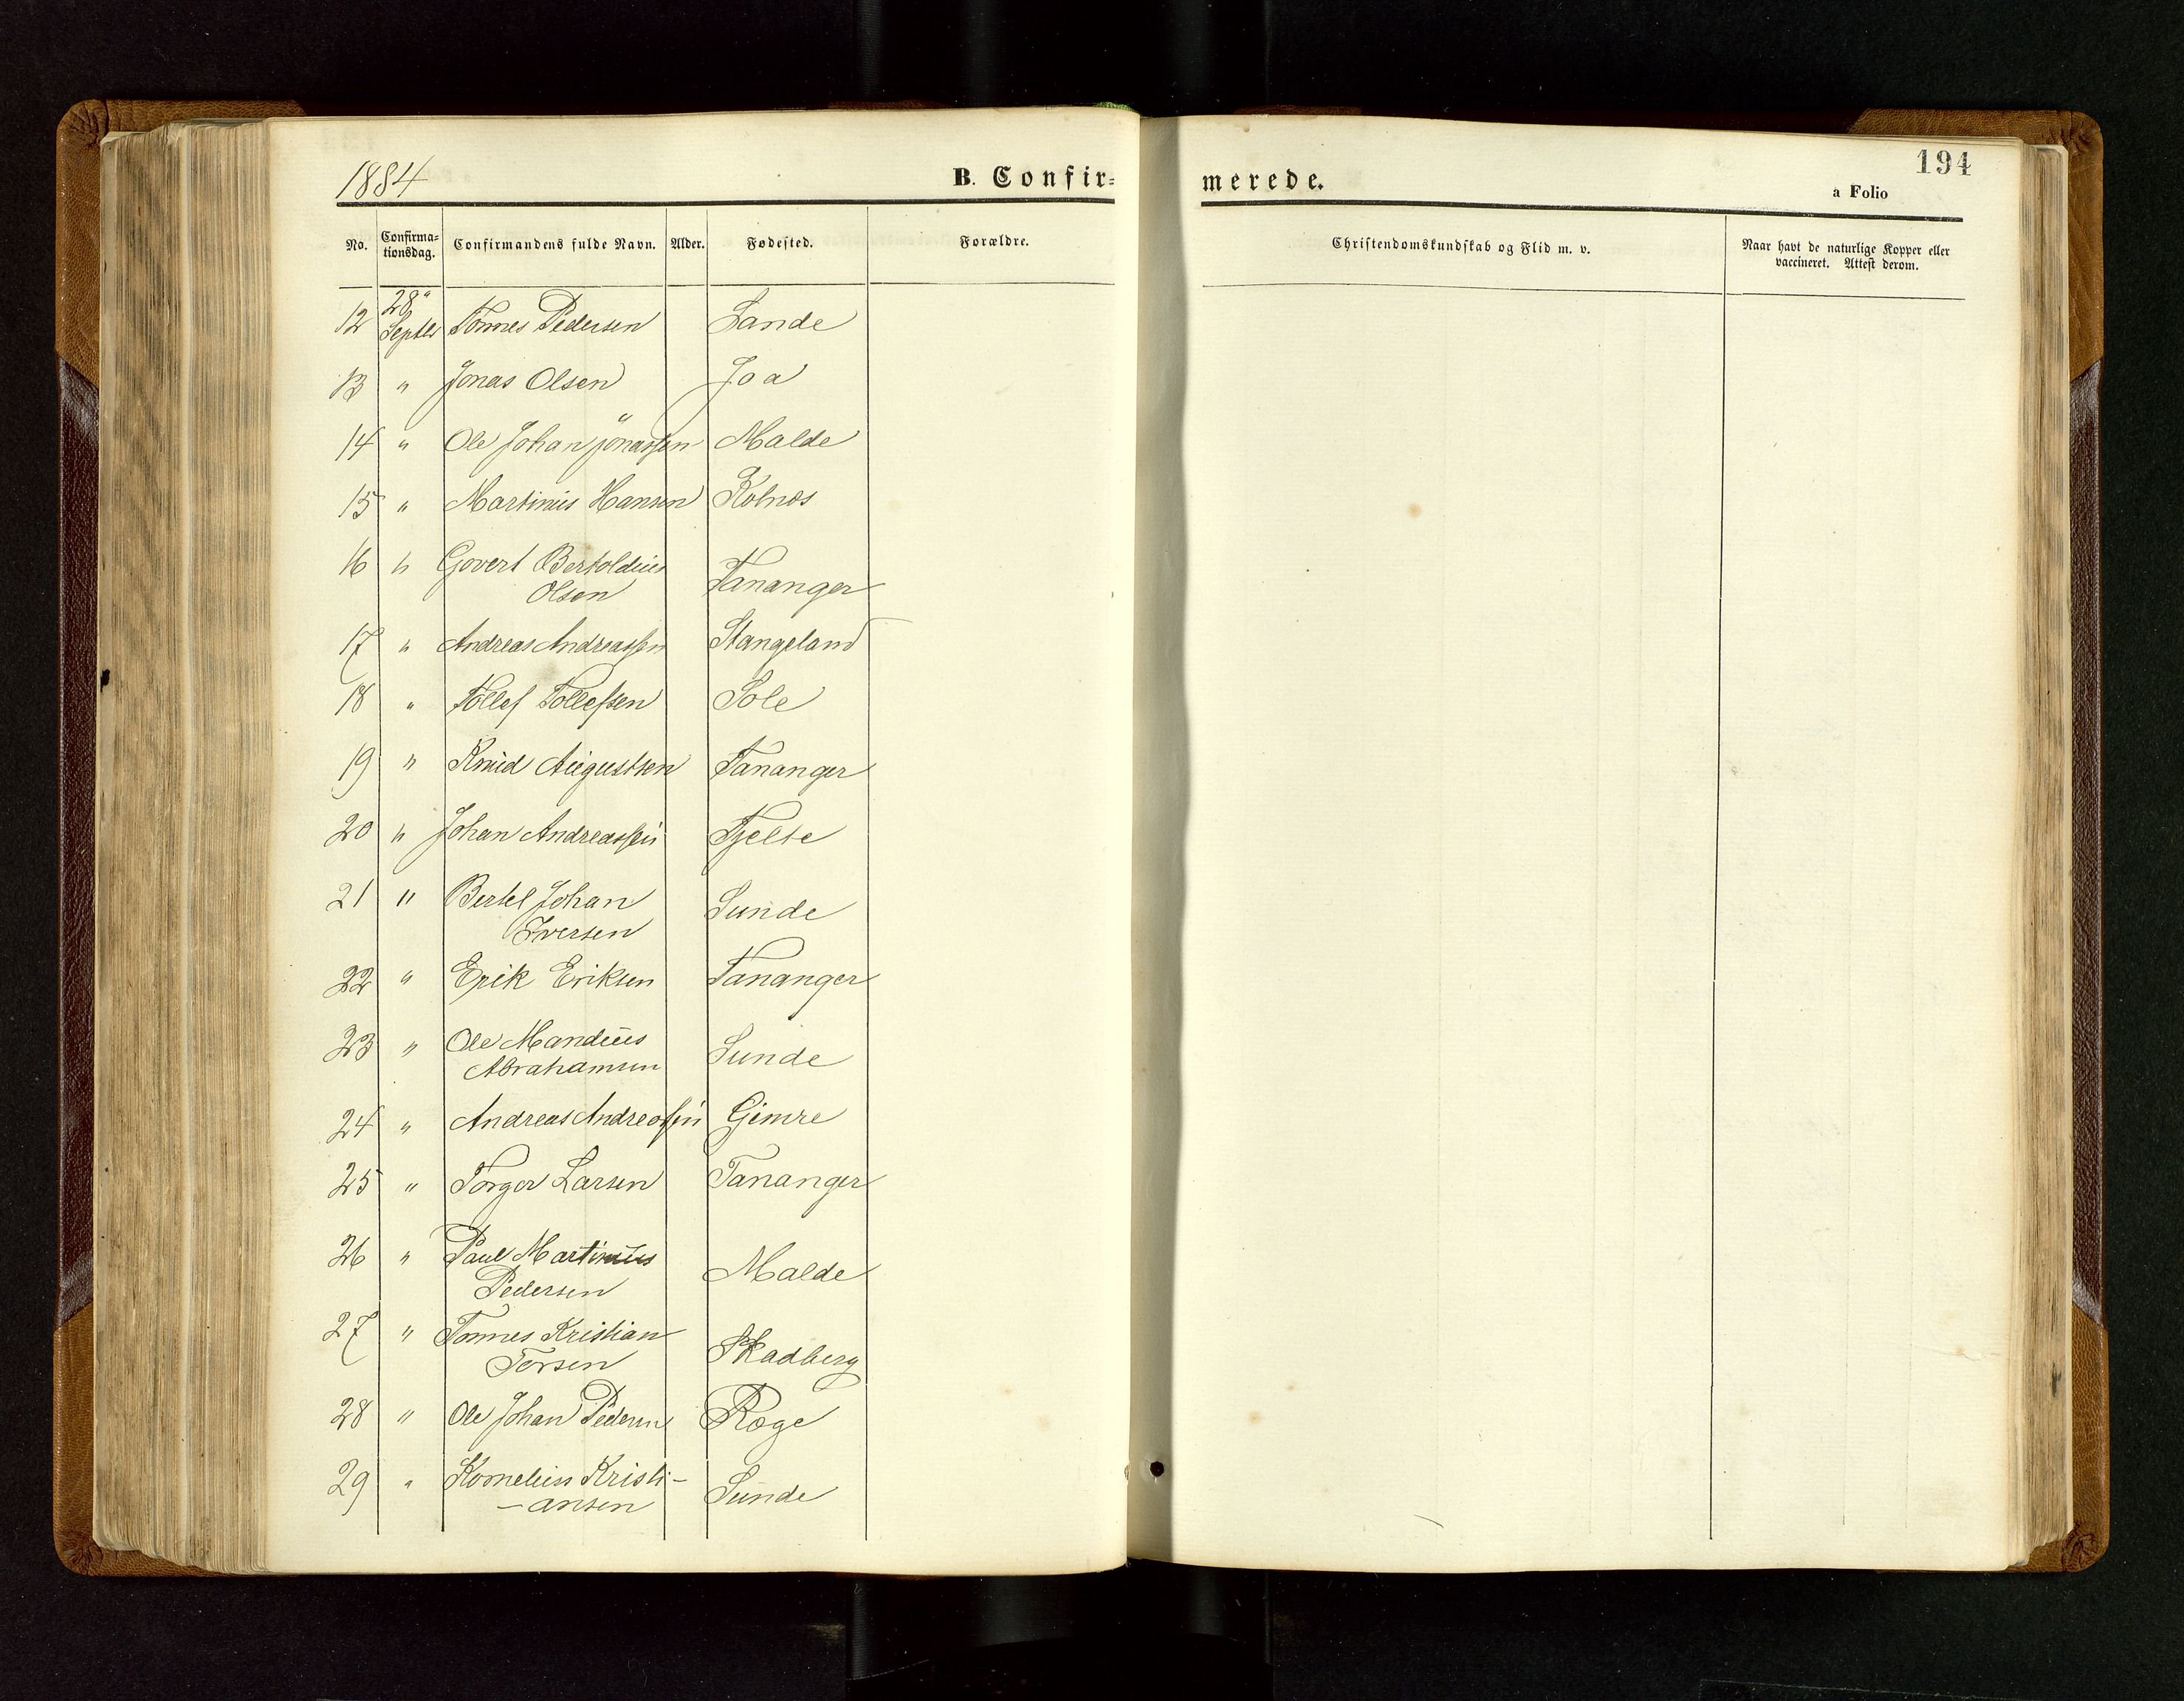 1884
B. Confirmerede.
194
a Folio
No. Confirmationsdag. Confirmandens fulde Navn. Alder. Fødested. Forældre. Christendomskundskab og Flid m. v. Naar havt de naturlige Kopper eller vaccineret. Attest derom.
12 28" Septbr Tønnes Pedersen Sande
13 " Jonas Olsen Joa
14 " Ole Johan Jonassen Malde
15 " Martinus Hansen Kolnes
16 " Govert Bertoldius
Olsen Tananger
17 " Andreas Andreassen Stangeland
18 " Tollef Tollefsen Sole
19 " Knud Augustsen Tananger
20 " Johan Andreassen Tjelte
21 " Bertel Johan
Iversen Sunde
22 " Erik Eriksen Tananger
23 " Ole Mandius
Abrahamsen Sunde
24 " Andreas Andreassen Gimre
25 " Torger Larsen Tananger
26 " Paul Martinius
Pedersen Malde
27 " Tønnes Kristian
Torsen Skadberg
28 " Ole Johan Pedersen Røge
29 " Kornelius Kristi-
-ansen Sunde